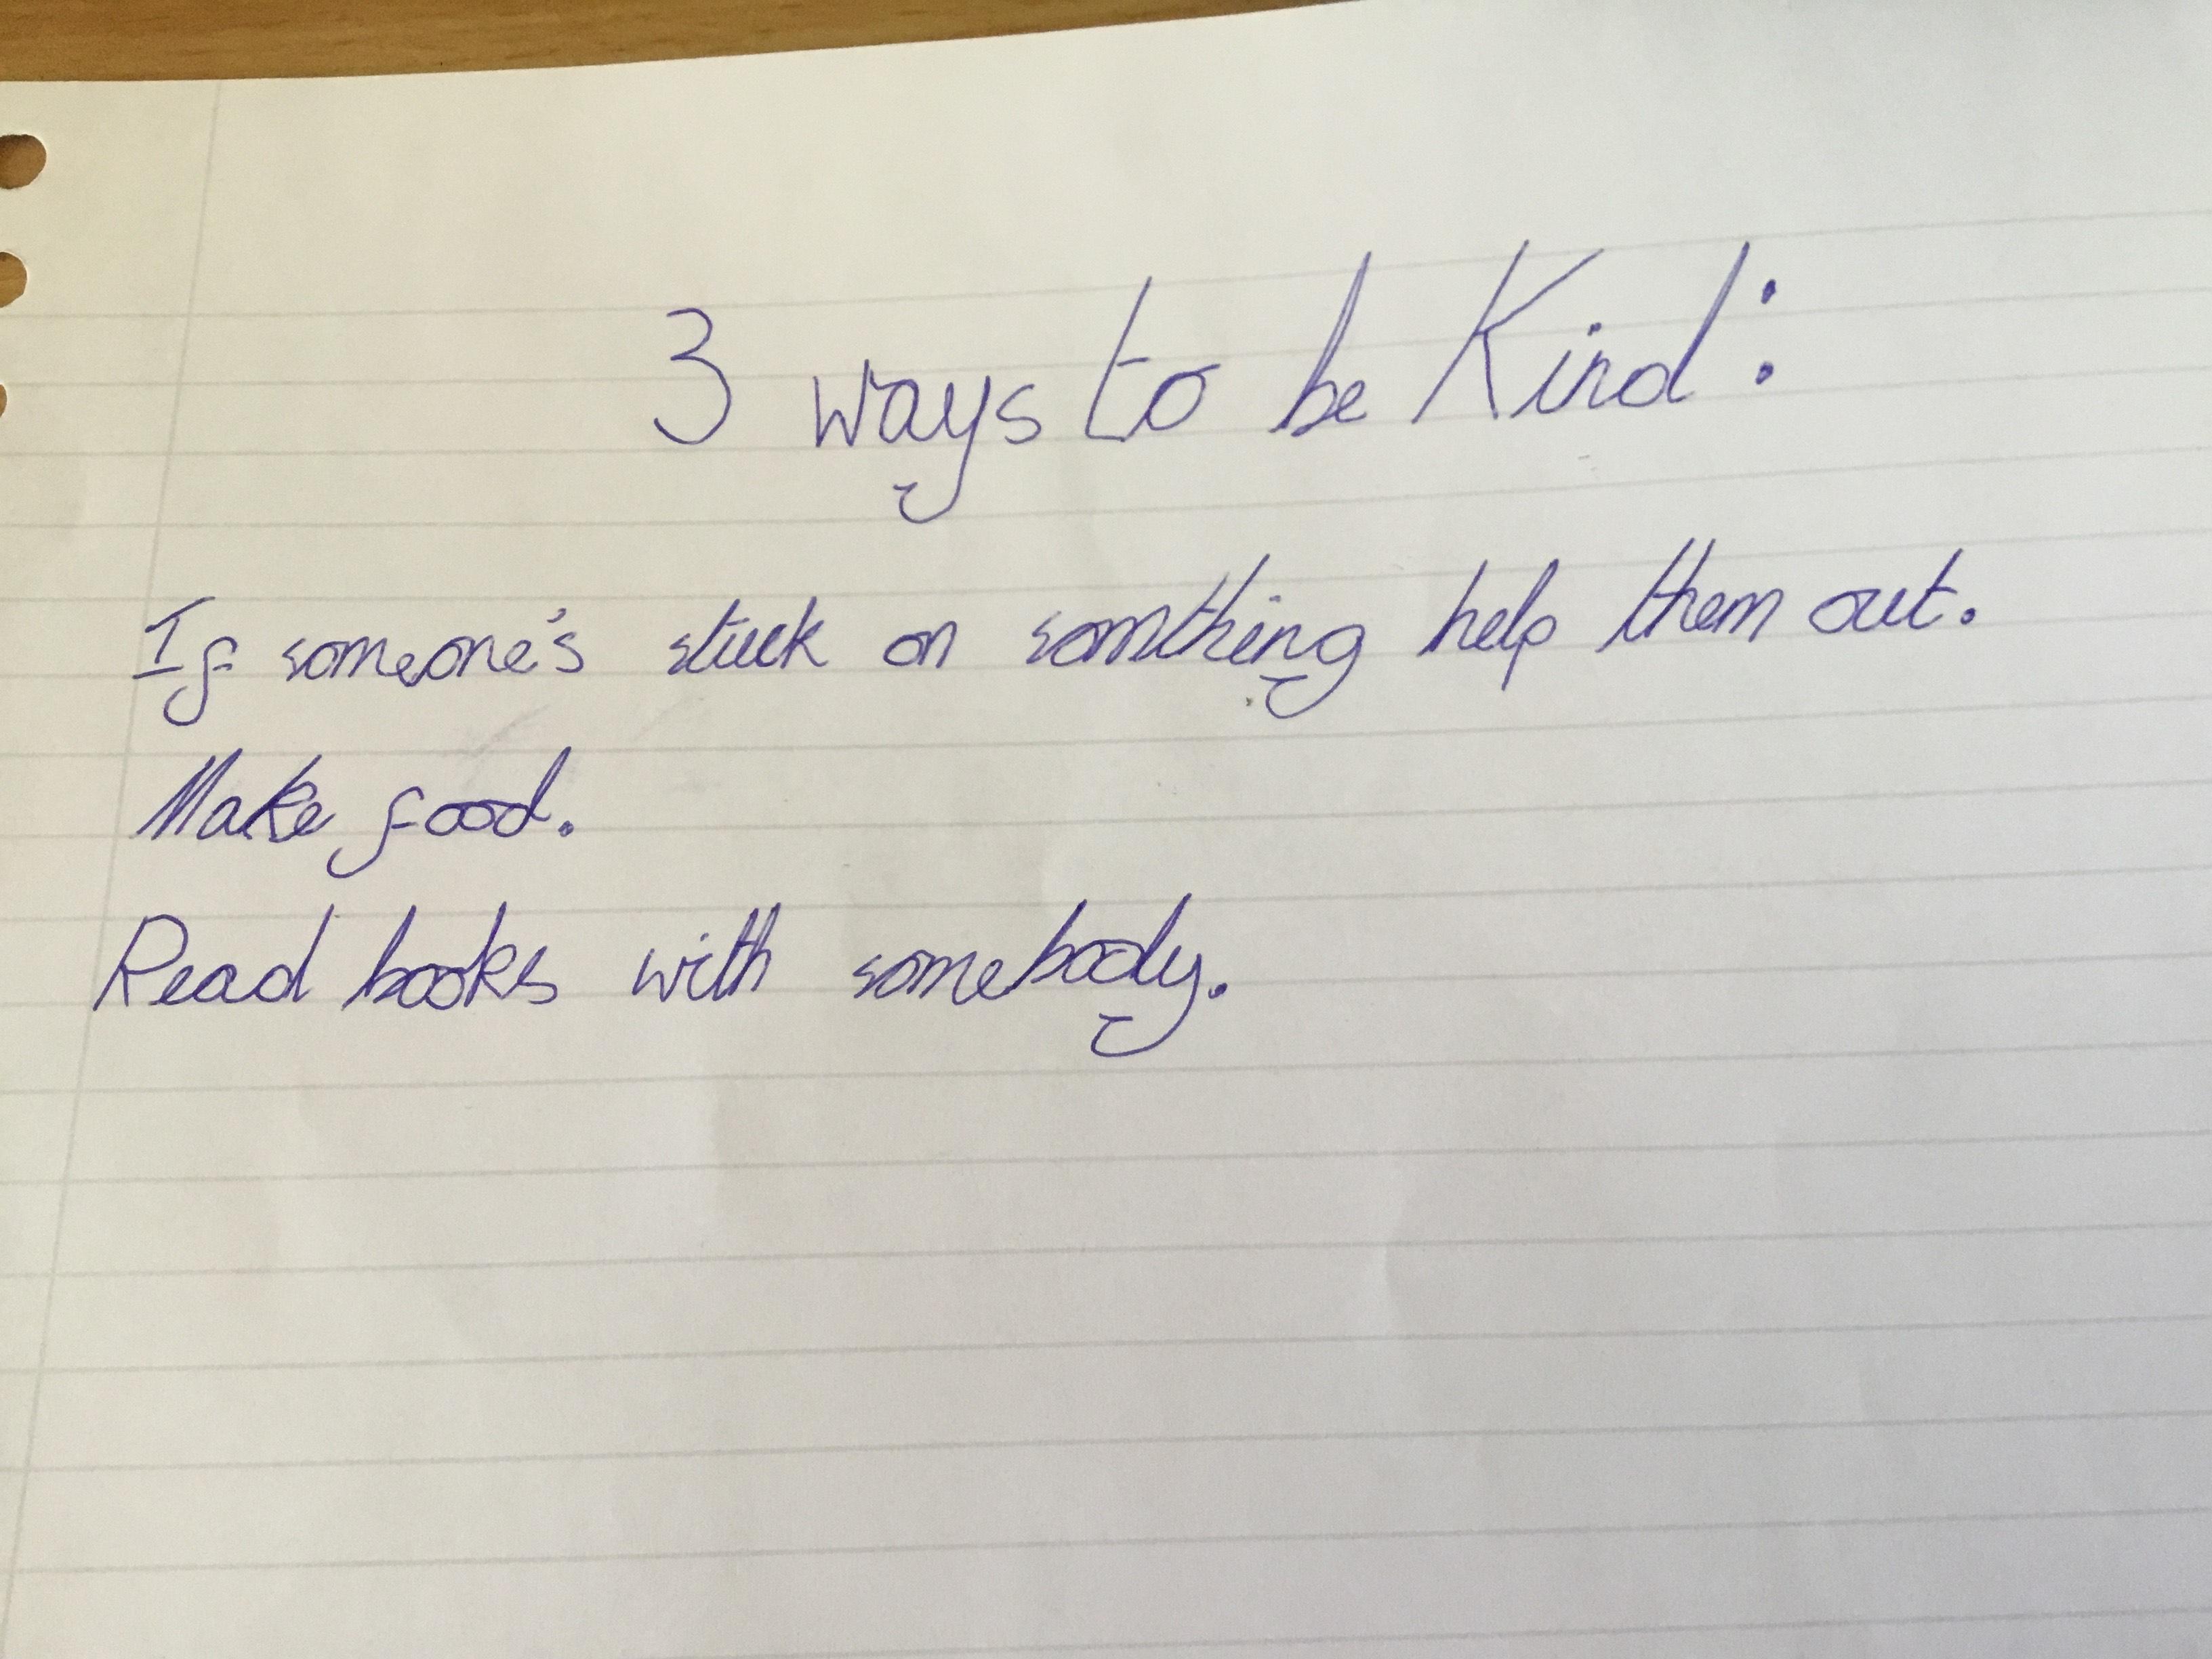 3 ways to be Kind:
If someone's stuck on somthing help them out.
Make food.
Read books with somebody.